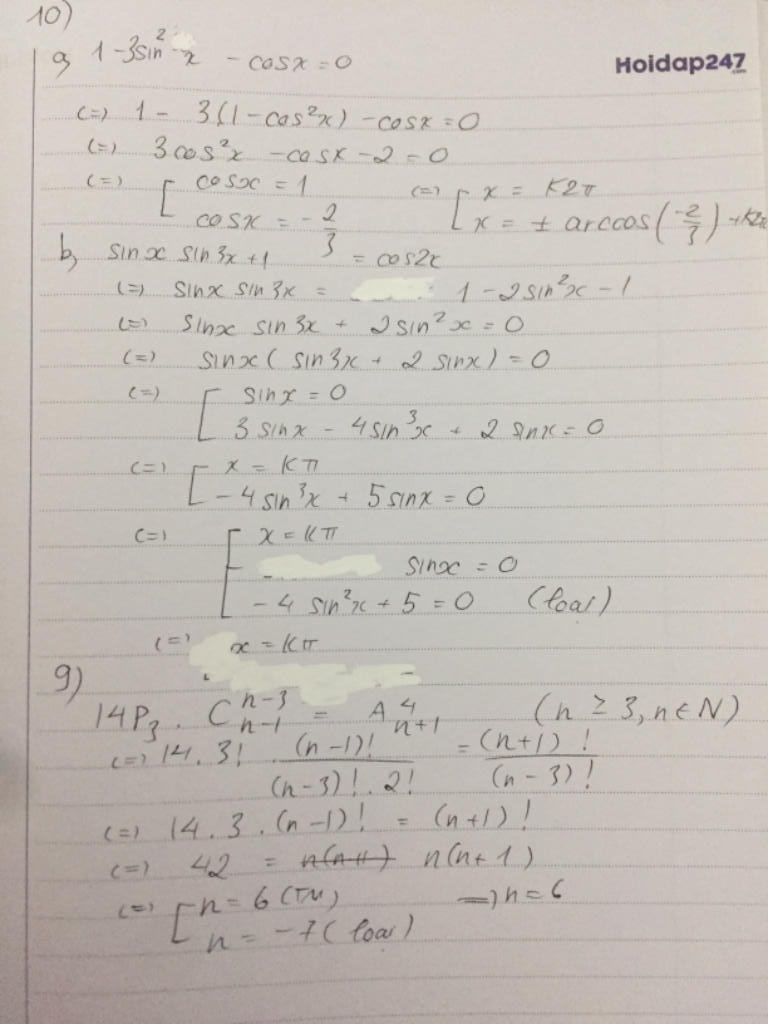 10)
a, 1 - 3sin²x - cosx = 0
Hoidap247.com
(=) 1 - 3(1 - cos²x) - cosx = 0
(=) 3cos²x - cosx - 2 = 0
(=) [ cosx = 1 (=) [ x = K2π
cosx = -2/3 x = ± arccos(-2/3) + K2π
b, sinx sin3x + 1 = cos2x
(=) sinx sin3x = 1 - 2sin²x - 1
(=) sinx sin3x + 2sin²x = 0
(=) sinx ( sin3x + 2 sinx) = 0
(=) [ sinx = 0
3 sinx - 4sin³x + 2 sinx = 0
(=) [ x = Kπ
-4 sin³x + 5 sinx = 0
(=) [ x = Kπ
sinx = 0
-4 sin²x + 5 = 0 (loại)
(=) x = Kπ
9)
14P₃ . C_{n-1}^{n-3} = A_{n+1}^{4} (n ≥ 3, n ∈ N)
(=) 14. 3! . (n-1)!/((n-3)! . 2!) = (n+1)!/(n-3)!
(=) 14. 3 . (n-1)! = (n+1)!
(=) 42 = n(n+1) n(n+1)
(=) [ n = 6 (TM) => n = 6
n = -7 (loại)